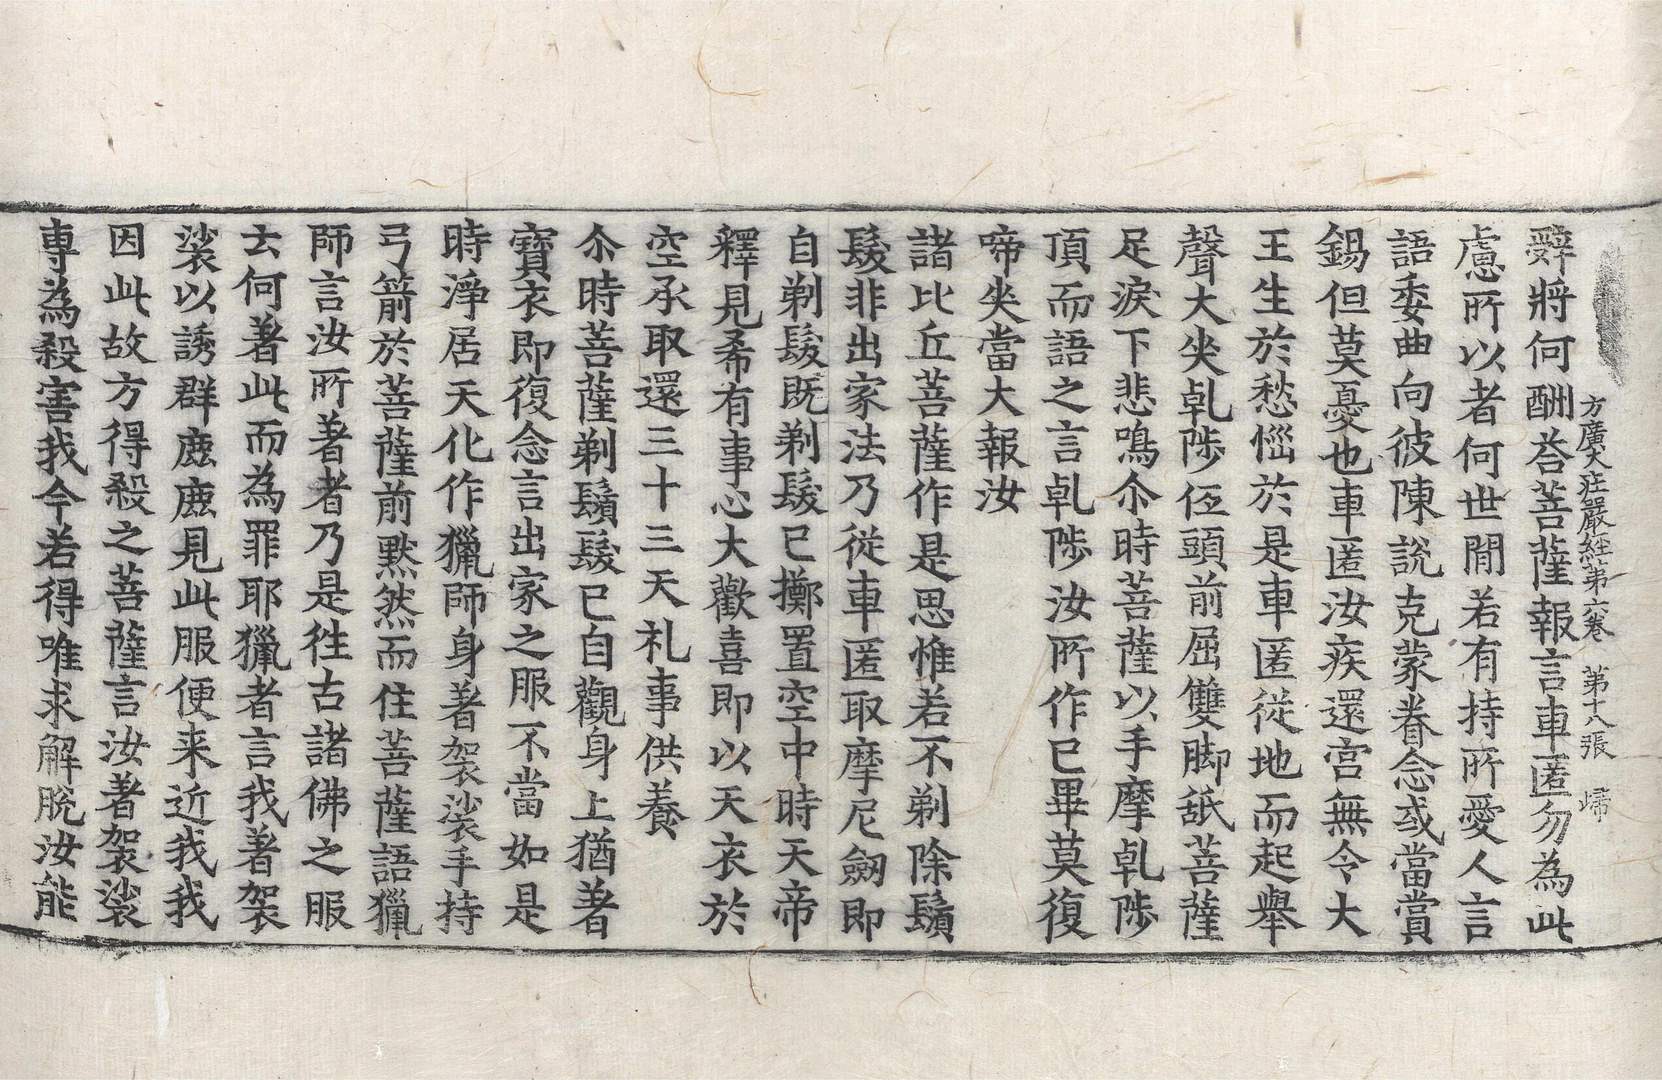 方廣大莊嚴經第六卷 第十八張 歸
辤將何酬荅菩薩報言車匿勿為此
慮所以者何世間若有持所愛人言
語委曲向彼陳說克蒙眷念或當賞
錫但莫憂也車匿汝疾還宮無令大
王生於愁惱於是車匿從地而起舉
聲大哭乹陟低頭前屈雙脚舐菩薩
足淚下悲鳴尒時菩薩以手摩乹陟
頂而語之言乹陟汝所作已畢莫復
啼哭當大報汝
諸比丘菩薩作是思惟若不剃除鬚
髮非出家法乃從車匿取摩尼劒即
自剃髮既剃髮已擲置空中時天帝
釋見希有事心大歡喜即以天衣於
空承取還三十三天礼事供養
尒時菩薩剃鬚髮已自觀身上猶著
寶衣即復念言出家之服不當如是
時淨居天化作獵師身著袈裟手持
弓箭於菩薩前默然而住菩薩語獵
師言汝所著者乃是徃古諸佛之服
云何著此而為罪耶獵者言我著袈
裟以誘群鹿鹿見此服便来近我我
因此故方得殺之菩薩言汝著袈裟
專為殺害我今若得唯求解脫汝能